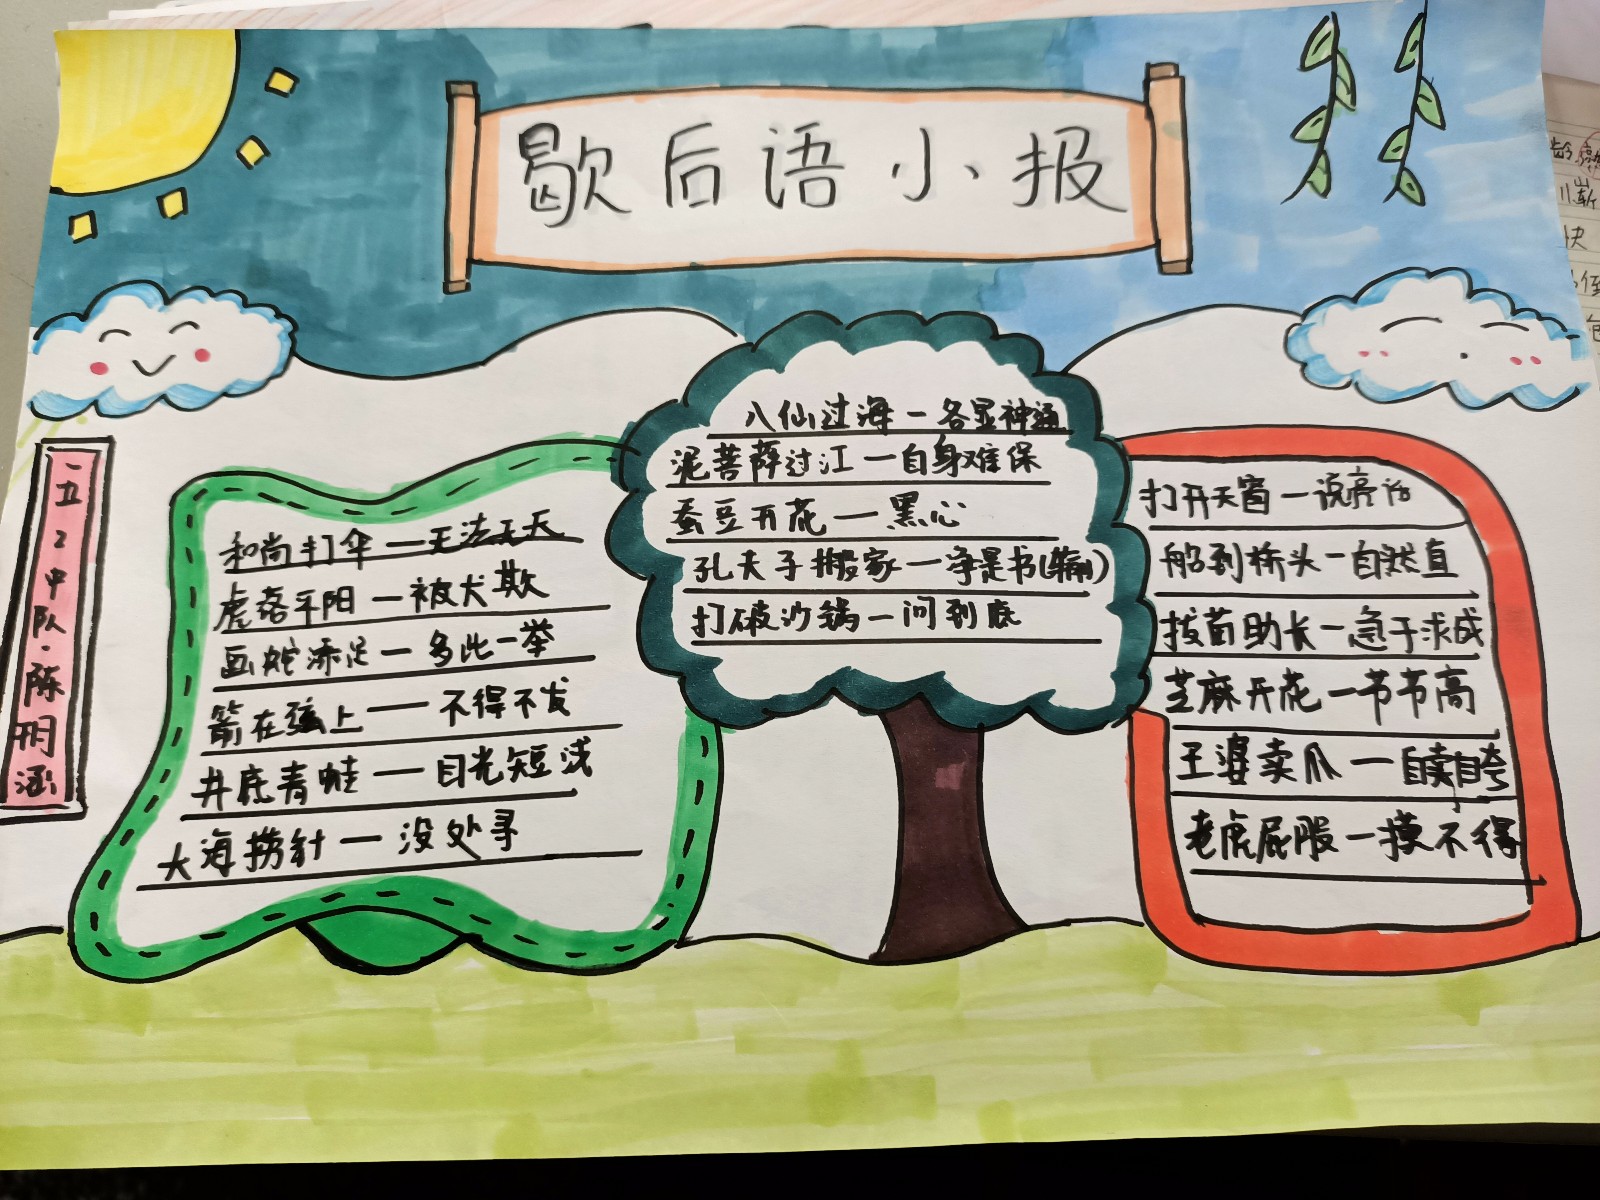 歇后语小报
二五2中队·陈玥涵
和尚打伞——无法无天
虎落平阳—被犬欺
画蛇添足—多此一举
箭在弦上——不得不发
井底青蛙——目光短浅
大海捞针—没处寻
八仙过海—各显神通
泥菩萨过江—自身难保
蚕豆开花——黑心
孔夫子搬家—净是书(输)
打破沙锅—问到底
打开天窗—说亮话
船到桥头—自然直
拔苗助长—急于求成
芝麻开花—节节高
王婆卖瓜—自卖自夸
老虎屁股—摸不得
崭
快